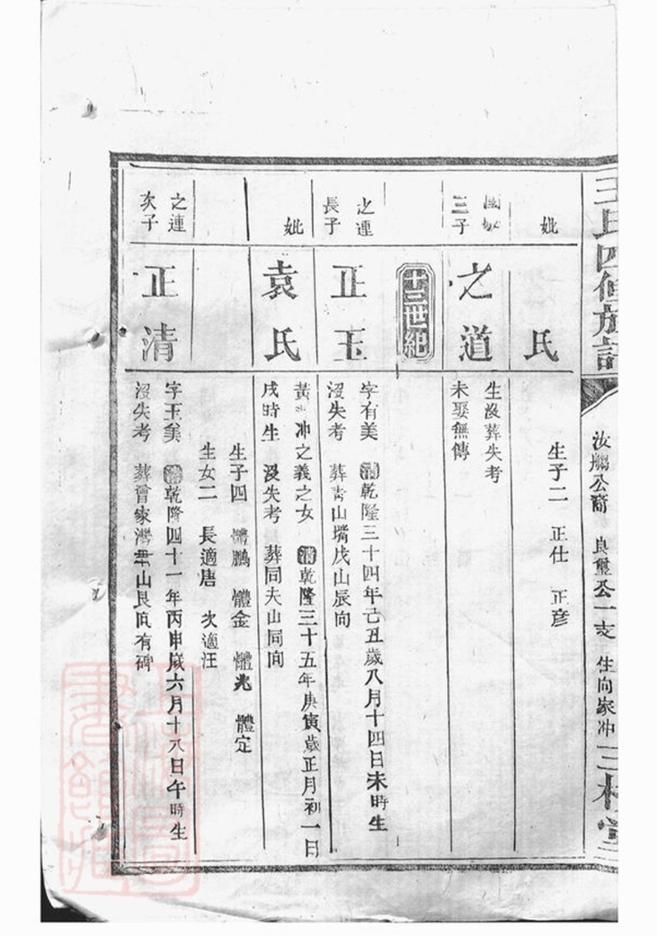 王氏四修族譜
汝鵬公裔 良璽公一支 生向家冲 三槐堂
妣
氏
生子二 正仕 正彦
三子
之道
生没葬失考
未娶無傳
十三世紀
之連
長子
正玉
字有美 清乾隆三十四年己丑歲八月十四日未時生
没失考 葬靑山嘴戊山辰向
妣
袁氏
黃 冲之義之女 清乾隆三十五年庚寅歲正月初一日
戌時生 没失考 葬同夫山同向
生子四 體鵬 體金 體兆 體定
生女二 長適唐 次適汪
之連
次子
正清
字玉美 清乾隆四十一年丙申歲六月十八日午時生
没失考 葬曾家灣 山艮向有碑